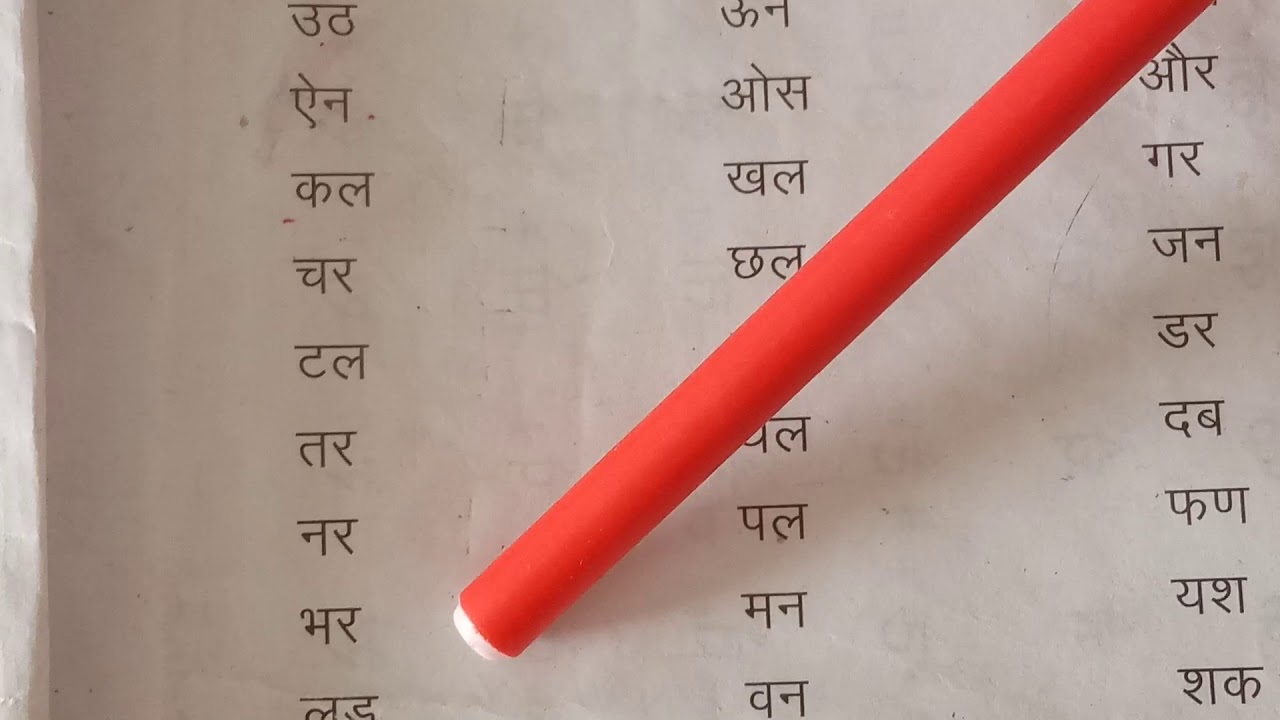 उठ ऊन
ऐन ओस और
कल खल गर
चर छल जन
टल डर
तर दब
नर पल फण
भर मन यश
वन शक